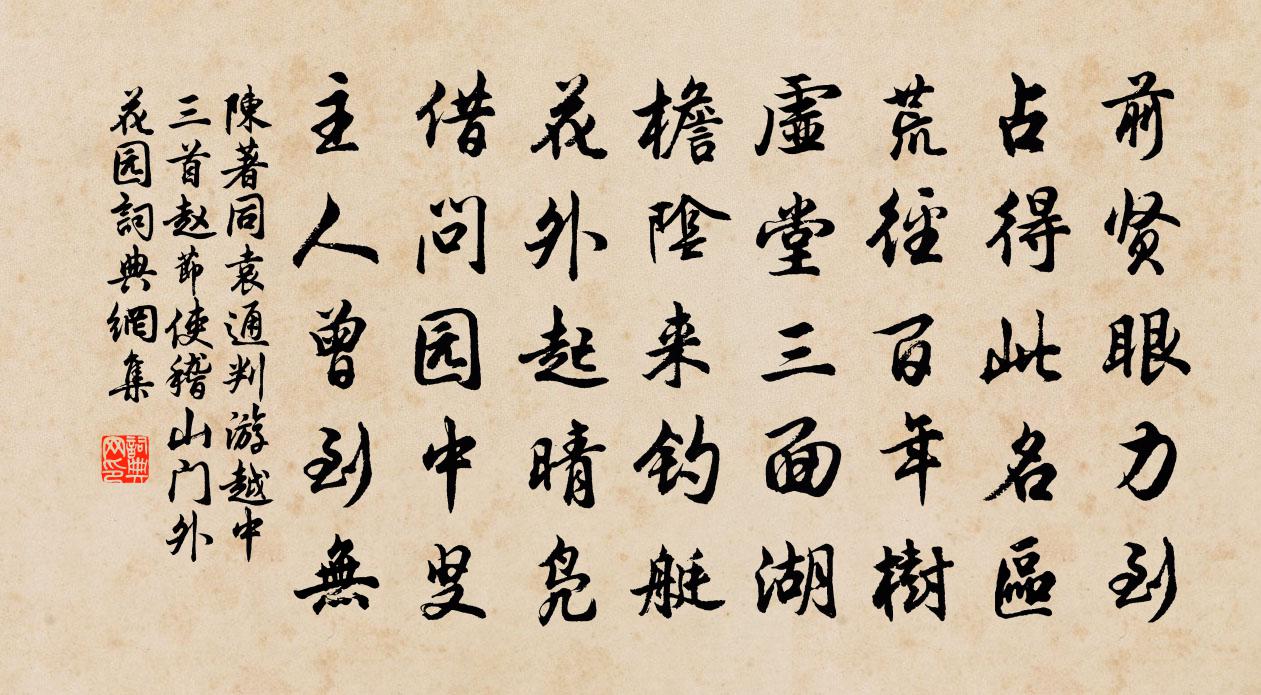 前贤眼力到
占得此名區
荒徑百年樹
虛堂三面湖
檐陰来釣艇
花外起晴凫
借問园中叟
主人曾到無
陳著同袁通判游越中
三首赵節使稽山门外
花园詞典網集
詞典网印